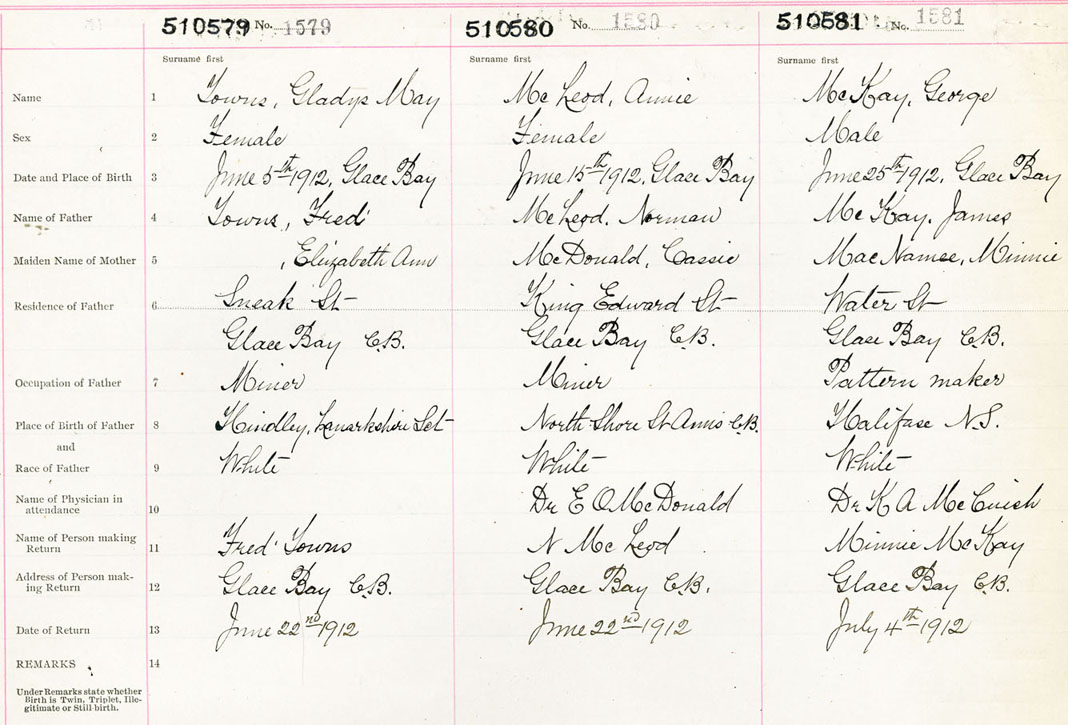 510579 No. 1579 510580 No. 1580 510581 No. 1581
Surname first Surname first Surname first
Name 1 Towns, Gladys May McLeod, Annie McKay, George
Sex 2 Female Female Male
Date and Place of Birth 3 June 5th 1912, Glace Bay June 15th 1912, Glace Bay June 25th 1912, Glace Bay
Name of Father 4 Towns, Fred McLeod, Norman McKay, James
Maiden Name of Mother 5 , Elizabeth Ann McDonald, Cassie MacNamee, Minnie
Residence of Father 6 Sneak St King Edward St Water St
Glace Bay C.B. Glace Bay C.B. Glace Bay C.B.
Occupation of Father 7 Miner Miner Pattern maker
Place of Birth of Father 8 Hindley, Lanarkshire Sct North Shore St Anns C.B. Halifax N.S.
and
Race of Father 9 White White White
Name of Physician in
attendance 10 Dr E O McDonald Dr K A McCuish
Name of Person making
Return 11 Fred Towns N McLeod Minnie McKay
Address of Person mak-
ing Return 12 Glace Bay C.B. Glace Bay C.B. Glace Bay C.B.
Date of Return 13 June 22nd 1912 June 22nd 1912 July 4th 1912
REMARKS 14
Under Remarks state whether
Birth is Twin, Triplet, Ille-
gitimate or Still birth.